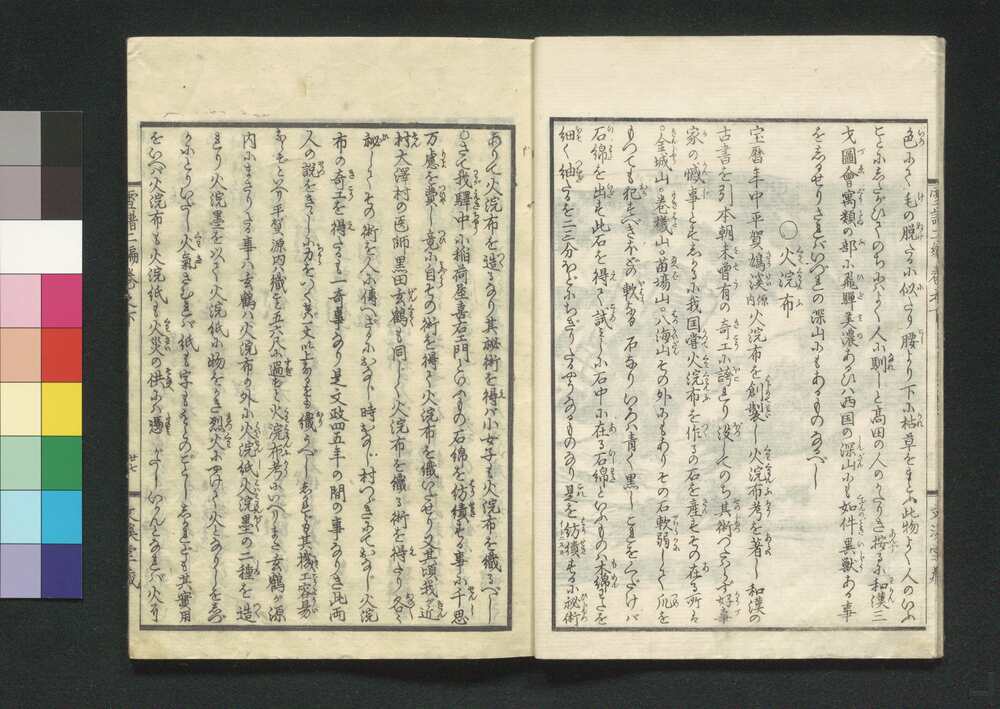 色ふかく毛の脱たるに似たり腰より下は枯草をまとふ此物よく人のいふ
ことにしたがひてのちにはよく人に馴しと高田の人のかたりき按るに和漢三
才圖會寓類の部に飛騨美濃あるひは西国の深山にも如件異獣ある事
をしるせりさればいづれの深山にもあるものなるべし
○火浣布
宝暦年中平賀鳩溪源内火浣布を創製し火浣布考を著し和漢の
古書を引本朝未曾有の奇工に誇れり没してのち其術つたはらず好事
家の憾事とすしかるに我国嘗火浣布を作るの石を産すその在る所は
○金城山○巻機山○苗場山○八海山その外にもありその石軟弱にして爪を
もつても犯すべきほどの軟なる石なりいろは青く黒しこれをくだけば
石綿を出す此石を得て試みしに石中に在る石綿といふもの木綿わたを
細く紬たるを二三分ほどにちぎりたるやうなるものなり是を紡績するに秘術
ありて火浣布を造るなり其秘術を得ば小女子も火浣布を織るべし
○さて我驛中に稲荷屋喜右エ門といふもの石綿を紡績する事に千思
万慮を費し竟に自その術を得て火浣布を織いだせり又其頃我が近
村大澤村の医師黒田玄鶴も同じく火浣布を織る術を得たり各々
秘してその術を人に傳へざるにおなじ時おなじ村つゞきにておなじ火浣
布の奇工を得たるも一奇事なり是文政四五年の間の事なりき此両
人の説をきゝしに力をつくせば一丈以上なるをも織うべししかれども其機工容易
ならずといへり平賀源内が織たるは五六尺に過ずと火浣布考にいへりまた玄鶴が源
内にまさりたる事は玄鶴は火浣布の外に火浣紙火浣墨の二種を造
れり火浣墨を以て火浣紙に物をかき烈火にやけて火となりしをしづ
かにとりいだし火氣さむれば紙も字ももとのごとししかれども其實用
をいへば火浣布も火浣紙も火災の供には憑がたしいかんとなれば火に